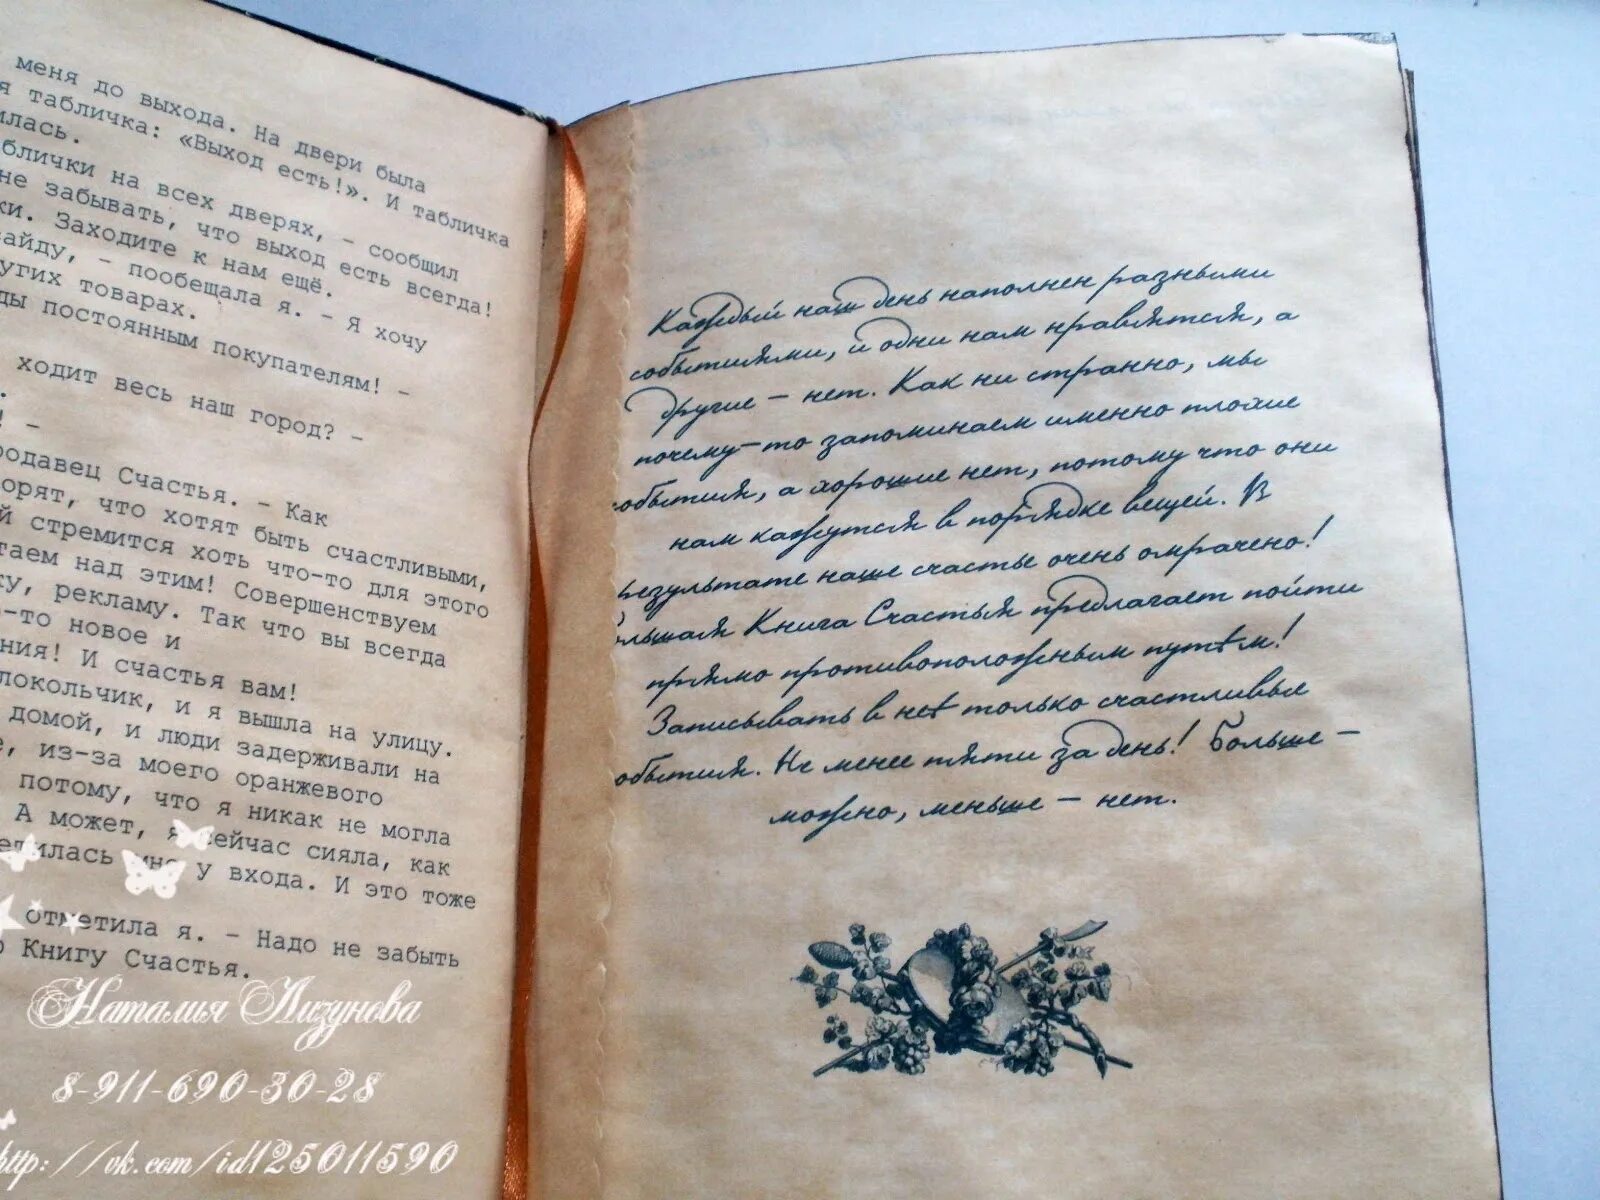 меня до выхода. На двери была
я табличка: «Выход есть!». И табличка
илась.
блички на всех дверях, – сообщил
не забывать, что выход есть всегда!
ки. Заходите к нам ещё.
зайду, – пообещала я. – Я хочу
угих товарах.
ды постоянным покупателям! –
ходит весь наш город? –
! –
родавец Счастья. – Как
орят, что хотят быть счастливыми,
й стремится хоть что-то для этого
таем над этим! Совершенствуем
ку, рекламу. Так что вы всегда
о-то новое и
ния! И счастья вам!
локольчик, и я вышла на улицу.
домой, и люди задерживали на
е, из-за моего оранжевого
потому, что я никак не могла
А может, я сейчас сияла, как
етилась мне у входа. И это тоже
отметила я. – Надо не забыть
ю Книгу Счастья.
Наталия Лизунова
8-911-690-30-28
http://vk.com/id125011590
Каждый наш день наполнен разными
событиями, и одни нам нравятся, а
другие – нет. Как ни странно, мы
почему-то запоминаем именно плохие
события, а хорошие нет, потому что они
нам кажутся в порядке вещей. В
результате наше счастье очень омрачено!
ольшая Книга Счастья предлагает пойти
прямо противоположным путём!
Записывать в неё только счастливые
события. Не менее пяти за день! Больше –
можно, меньше – нет.